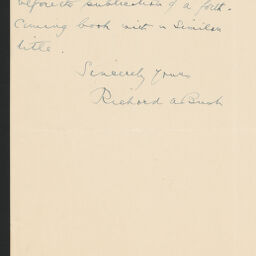 before subtraction of a forth-
coming book with a similar
title.
Sincerely yours
Richard A Bush